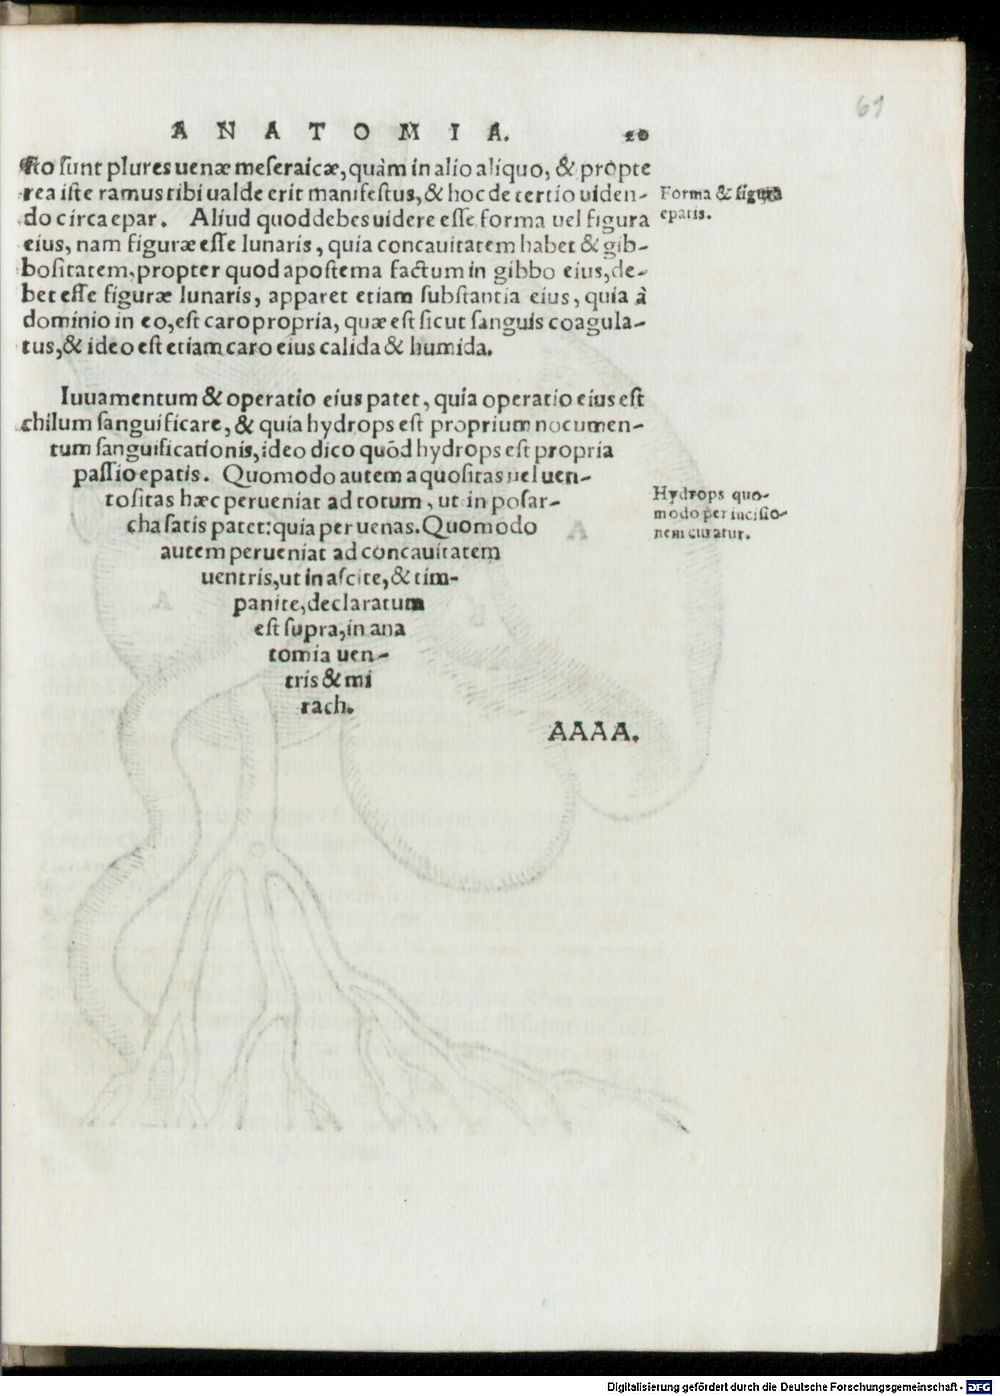 61
ANATOMIA. 20
sto sunt plures uenæ meseraicæ, quàm in alio aliquo, & propte
rea iste ramus tibi ualde erit manifestus, & hoc de tertio uiden-
do circa epar. Aliud quod debes uidere esse forma uel figura
eius, nam figuræ esse lunaris, quia concauitatem habet & gib-
bositatem, propter quod apostema factum in gibbo eius, de-
bet esse figuræ lunaris, apparet etiam substantia eius, quia à
dominio in eo, est caro propria, quæ est sicut sanguis coagula-
tus, & ideo est etiam caro eius calida & humida.
Forma & figura
epatis.
Iuuamentum & operatio eius patet, quia operatio eius est
chilum sanguificare, & quia hydrops est proprium nocumen-
tum sanguificationis, ideo dico quôd hydrops est propria
passio epatis. Quomodo autem aquositas uel uen-
tositas hæc perueniat ad totum, ut in posar-
cha satis patet: quia per uenas. Quomodo
autem perueniat ad concauitatem
uentris, ut in ascite, & tim-
panite, declaratum
est supra, in ana
tomia uen-
tris & mi
rach.
Hydrops quo-
modo per incisio-
nem curatur.
AAAA.
Digitalisierung gefördert durch die Deutsche Forschungsgemeinschaft - DFG